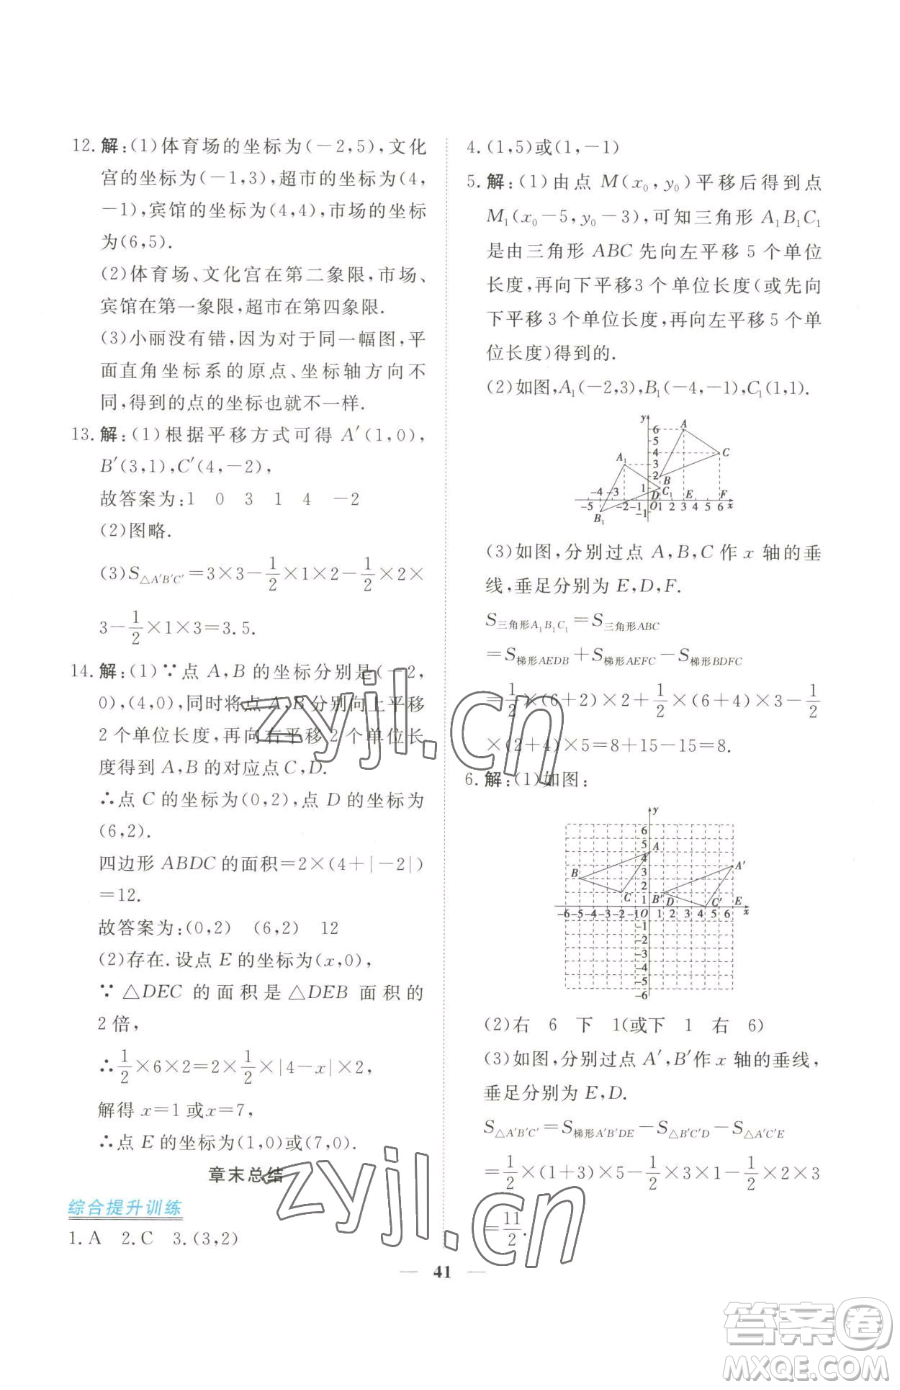 12.解:(1)体育场的坐标为(-2,5),文化
宫的坐标为(-1,3),超市的坐标为(4,
-1),宾馆的坐标为(4,4),市场的坐标
为(6,5).
(2)体育场、文化宫在第二象限,市场、
宾馆在第一象限,超市在第四象限.
(3)小丽没有错,因为对于同一幅图,平
面直角坐标系的原点、坐标轴方向不
同,得到的点的坐标也就不一样.
13.解:(1)根据平移方式可得 A′(1,0),
B′(3,1),C′(4,-2),
故答案为:1 0 3 1 4 -2
(2)图略.
(3)S△A′B′C′=3×3-1/2×1×2-1/2×2×
3-1/2×1×3=3.5.
14.解:(1)∵点 A,B 的坐标分别是(-2,
0),(4,0),同时将点 A,B 分别向上平移
2 个单位长度,再向右平移 2 个单位长
度得到 A,B 的对应点 C,D.
∴点 C 的坐标为(0,2),点 D 的坐标为
(6,2).
四边形 ABDC 的面积=2×(4+|-2|)
=12.
故答案为:(0,2) (6,2) 12
(2)存在.设点 E 的坐标为(x,0),
∵△DEC 的面积是△DEB 面积的
2 倍,
∴1/2×6×2=1/2×|4-x|×2×2,
解得 x=1 或 x=7,
∴点 E 的坐标为(1,0)或(7,0).
章末总结
综合提升训练
1.A 2.C 3.(3,2)
4.(1,5)或(1,-1)
5.解:(1)由点 M(x₀,y₀)平移后得到点
M₁(x₀-5,y₀-3),可知三角形 A₁B₁C₁
是由三角形 ABC 先向左平移 5 个单位
长度,再向下平移 3 个单位长度(或先向
下平移 3 个单位长度,再向左平移 5 个单
位长度)得到的.
(2)如图,A₁(-2,3),B₁(-4,-1),C₁(1,1).
y
6
5
4
3
2
1
-1
A
C
B
A₁
B₁
C₁
D
E
F
-5 -4 -3 -2 -1 O 1 2 3 4 5 6 x
(3)如图,分别过点 A,B,C 作 x 轴的垂
线,垂足分别为 E,D,F.
S三角形A₁B₁C₁=S三角形ABC
=S梯形AEDB+S梯形AEFC-S梯形BDFC
=1/2×(6+2)×2+1/2×(6+4)×3-1/2
×(2+4)×5=8+15-15=8.
6.解:(1)如图:
y
6
5
4
3
2
1
A
B
C
A′
B′
C′
D
E
-6 -5 -4 -3 -2 -1 O 1 2 3 4 5 6 x
-1
-2
-3
-4
-5
-6
(2)右 6 下 1(或下 1 右 6)
(3)如图,分别过点 A′,B′作 x 轴的垂线,
垂足分别为 E,D.
S△A′B′C′=S梯形A′B′DE-S△B′C′D-S△A′C′E
=1/2×(1+3)×5-1/2×1×3-1/2×2×3
=11/2.
41
zyjl.cn
zyjl.cn
答案圈
MXQE.COM